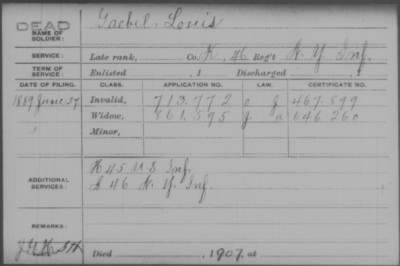 DEAD
NAME OF SOLDIER: Gaebel Louis
SERVICE: Late rank, Co. K, 46 Reg't N. Y. Inf.
TERM OF SERVICE: Enlisted , 1 Discharged , 1
DATE OF FILING. CLASS. APPLICATION NO. LAW. CERTIFICATE NO.
1889 June 27 Invalid, 713.772 467.899
Widow, 861.595 646.260
Minor,
ADDITIONAL SERVICES: K 45 U.S. Inf.
46 N. Y. Inf.
REMARKS:
Died 1907, at